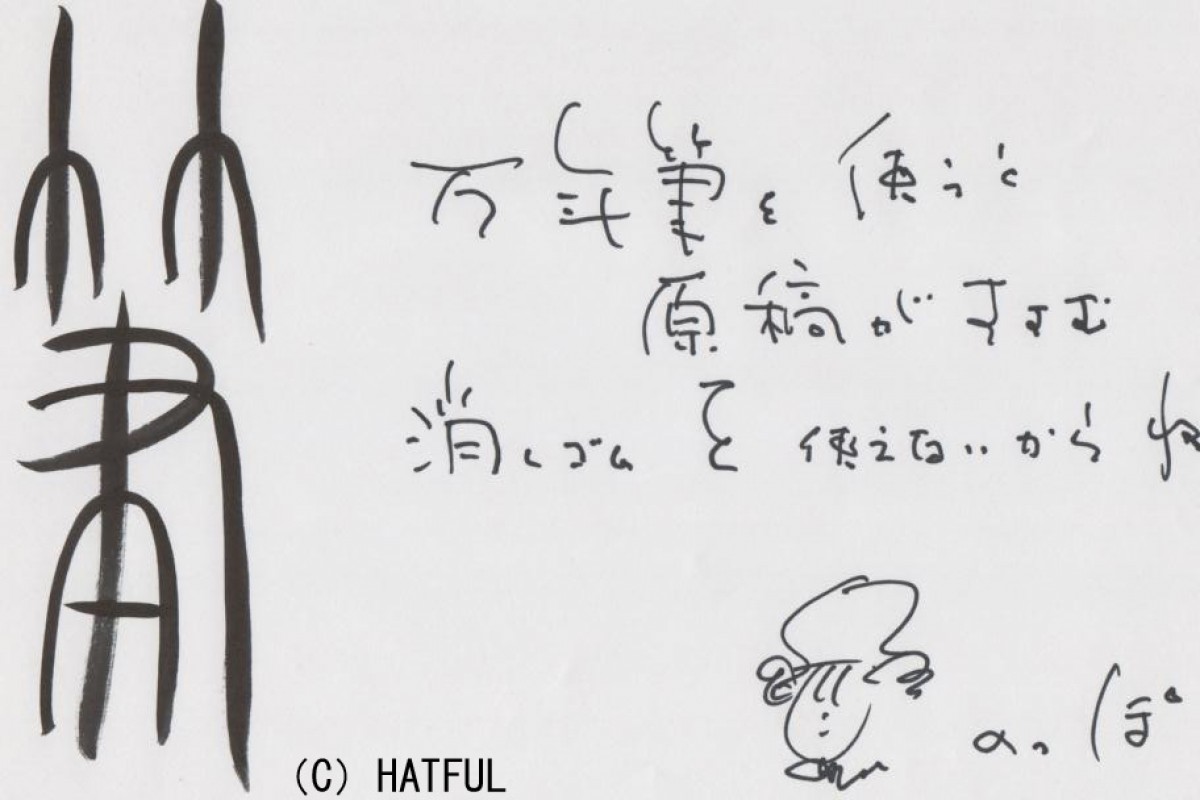 筆
万年筆を使うと
原稿がすすむ
消しゴムを使えないからね
のっぽ
(C) HATFUL